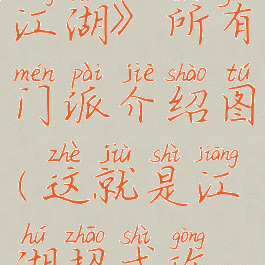 江湖》所有
mén pài jiè shào tú
门派介绍图
zhè jiù shì jiāng
(这就是江
hú zhāo shì gōng
湖招式